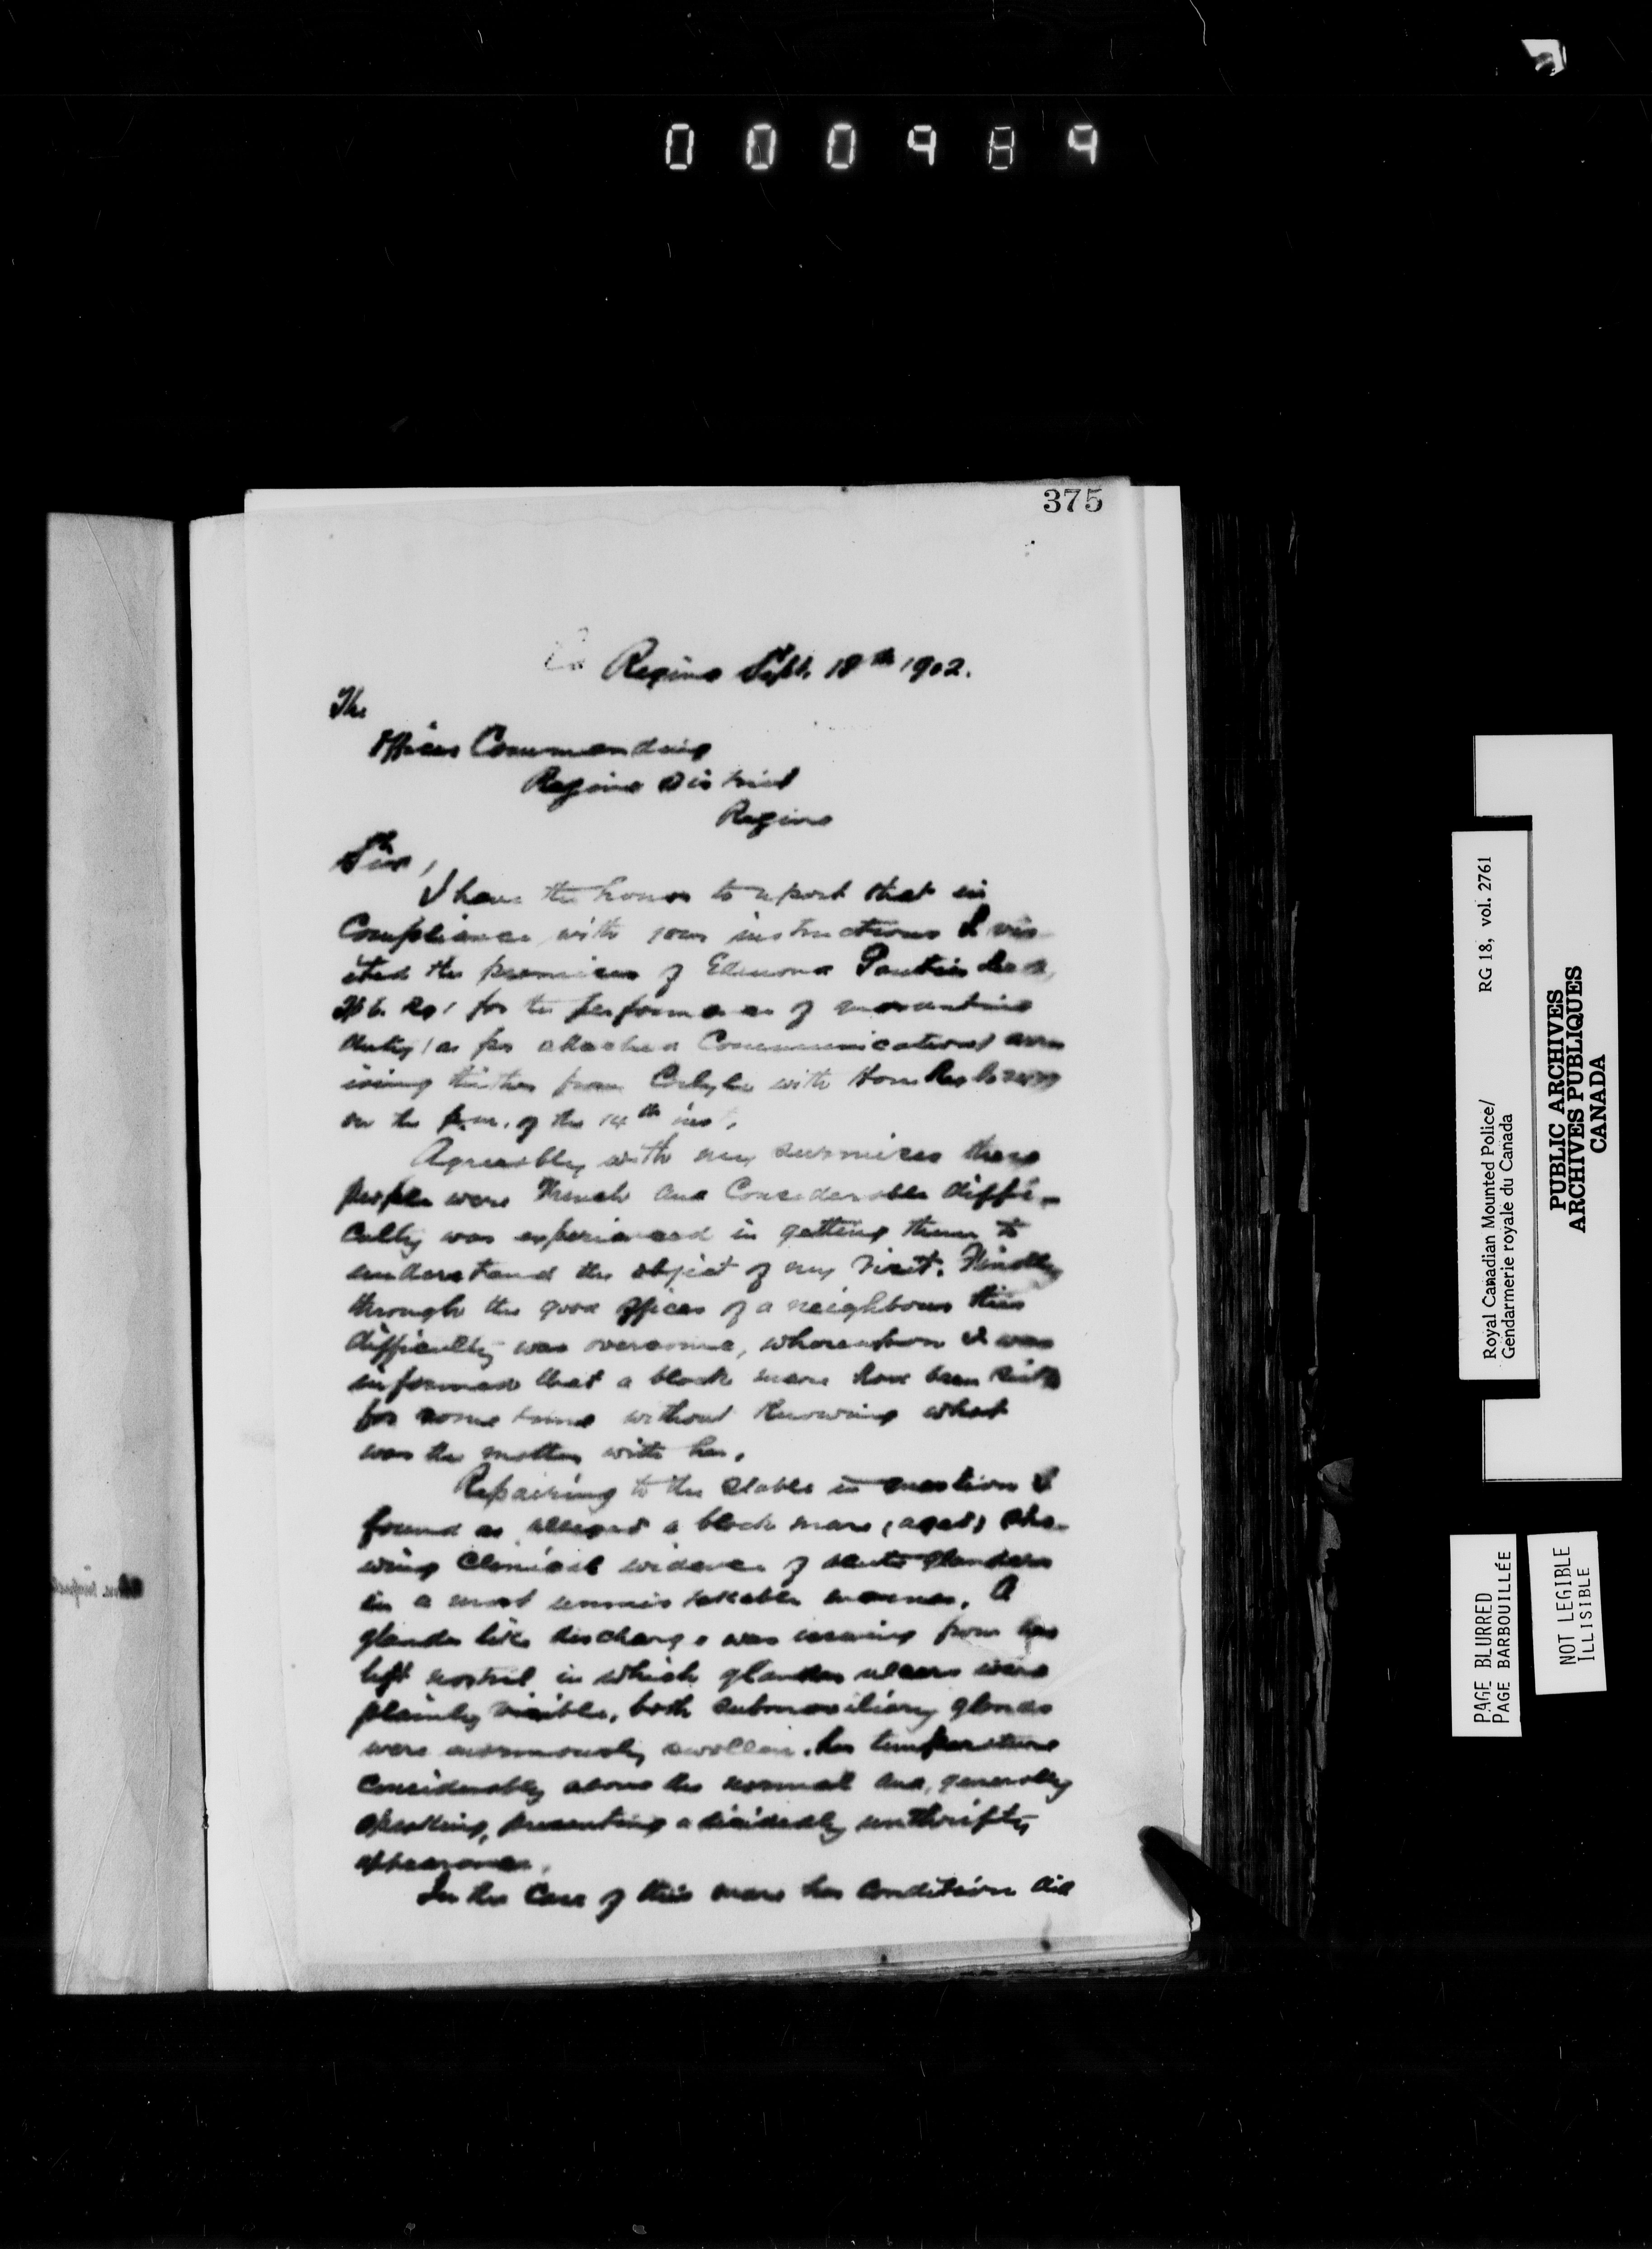 000989
375
Regina Sept. 18th 1902.
The
Officer Commanding
Regina District
Regina
Sir,
I have the honor to report that in
Compliance with your instructions I vis-
ited the premises of Edmond
for the performance of quarantine
duty (as per attached Communication) arr
iving thither from Carlyle with
on the p.m. of the 14th inst.
Agreeably with my surmises these
people were French and Considerable diffi-
culty was experienced in getting them to
understand the object of my visit. Finally
through the good offices of a neighbour this
difficulty was overcome, whereupon I was
informed that a black mare had been sick
for some time without Knowing what
was the matter with her.
Repairing to the stable in question I
found as alleged a black mare, (aged) sho-
wing Clinical evidence of acute glanders
in a most unmistakable manner. A
glander like discharge was issuing from her
left nostril in which glander ulcers were
plainly visible, both submaxiliary glands
were enormously swollen, her temperature
considerably above the normal and, generally
speaking, presenting a decidedly unthrifty
appearance.
In the Case of this mare her Condition did
Royal Canadian Mounted Police/ RG 18, vol. 2761
Gendarmerie royale du Canada
PUBLIC ARCHIVES
ARCHIVES PUBLIQUES
CANADA
PAGE BLURED
PAGE BARBOUILLÉE
NOT LEGIBLE
ILLISIBLE